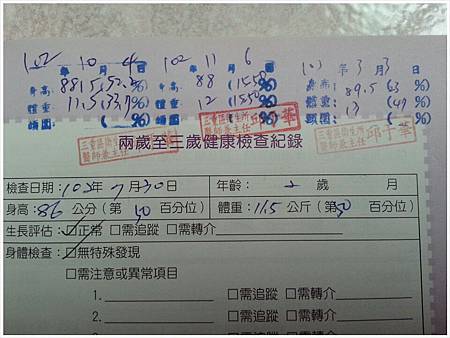 102 年 10 月 4 日 102 年 11 月 6 日 103 年 3 月 3 日
身高: 88 身高: 89.5 (63 %)
體重: 11.5 體重: 12 體重: 13
頭圍: ( %) 頭圍: ( %) 頭圍: ( %)
三重區衛生所 醫師兼主任
兩歲至三歲健康檢查紀錄
檢查日期: 年 7 月 30 日 年齡: 2 歲 月
身高: 86 公分(第 50 百分位) 體重: 11.5 公斤(第 50 百分位)
生長評估:□正常 □需追蹤 □需轉介
身體檢查:□無特殊發現
□需注意或異常項目
1. □需追蹤 □需轉介
2. □需追蹤 □需轉介
3. □需追蹤 □需轉介